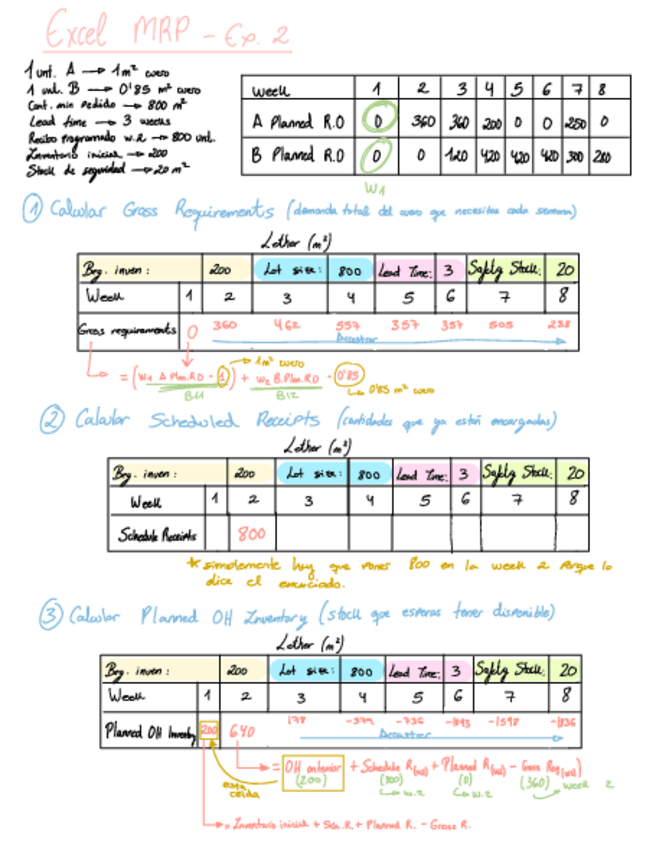 Excel MRP - Ex. 2
1 unt. A → 1m² cuero
1 unt. B → 0'85 m² cuero
Cant. min pedido → 800 m²
Lead time → 3 weeks
Recibo Programado w.2 → 800 unt.
Inventario inicial → 200
Stock de seguridad → 20 m²
Week 1 2 3 4 5 6 7 8
A Planned R.O 0 360 360 200 0 0 250 0
B Planned R.O 0 0 120 420 420 420 300 280
W1
① Calcular Gross Requirements (demanda total del cuero que necesitas cada semana)
Lether (m²)
Beg. inven: 200 Lot size: 800 Lead Time: 3 Safety Stock: 20
Week 1 2 3 4 5 6 7 8
Gross requirements 0 360 462 557 357 357 505 238
Arrastrar
→ 1m² cuero
= (W1 A Plan.RO · 1) + W2 B.Plan.RO · 0'85
B11 B12 → 0'85 m² cuero
② Calcular Scheduled Receipts (cantidades que ya están encargadas)
Lether (m²)
Beg. inven: 200 Lot size: 800 Lead Time: 3 Safety Stock: 20
Week 1 2 3 4 5 6 7 8
Schedule Receipts 800
* simplemente hay que poner 800 en la week 2 porque lo
dice el enunciado.
③ Calcular Planned OH Inventory (stock que esperas tener disponible)
Lether (m²)
Beg. inven: 200 Lot size: 800 Lead Time: 3 Safety Stock: 20
Week 1 2 3 4 5 6 7 8
Planned OH Inventory 200 640 178 -379 -736 -1093 -1598 -1836
Arrastrar
= OH anterior + Schedule R(w2) + Planned R(w2) - Gross Req(w2)
esta celda (200) (800) (0) (360) week 2
→ w.2 → w.2
→ = Inventario inicial + Sch. R + Planned R. - Gross R.